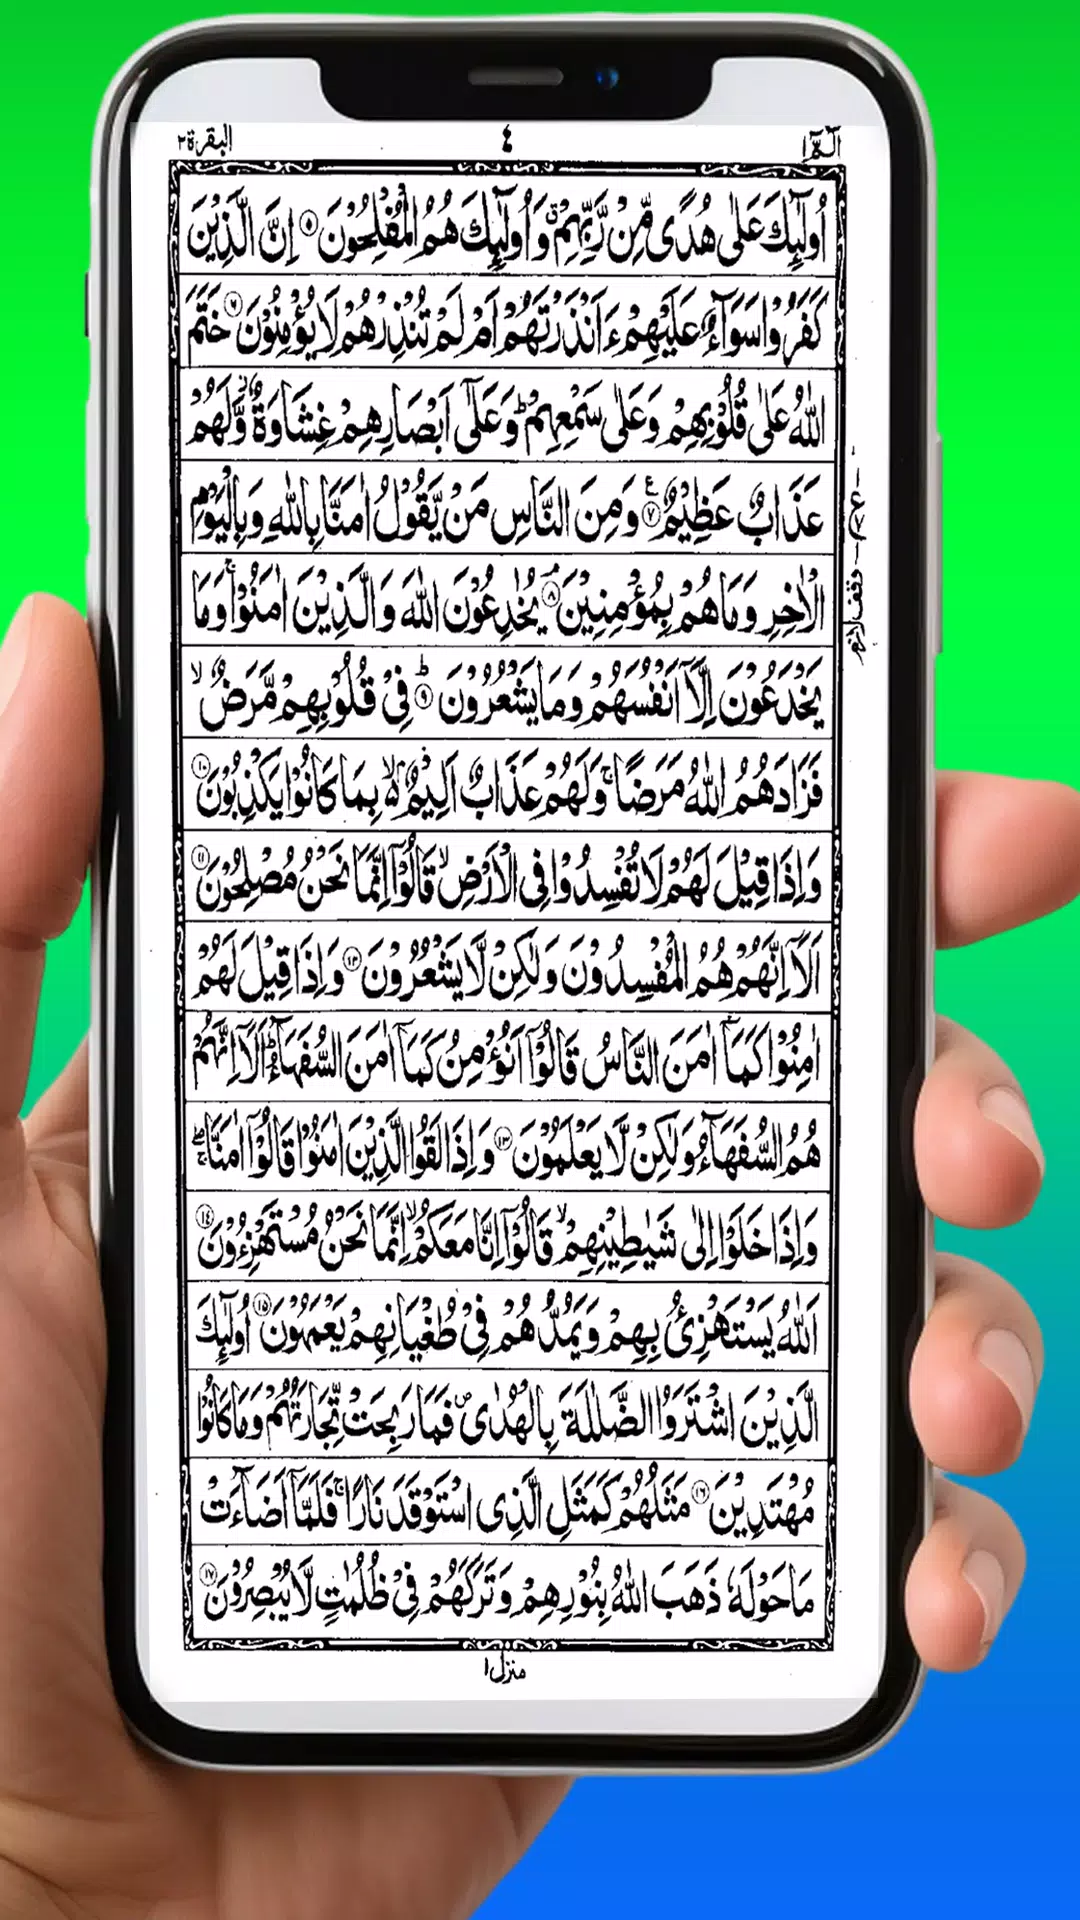 الٓمّٓ ١
٤
البقرة ٢
اُولٰٓئِكَ عَلٰى هُدًى مِّنْ رَّبِّهِمْ ۗ وَ اُولٰٓئِكَ هُمُ الْمُفْلِحُوْنَ ۝٥ اِنَّ الَّذِيْنَ
كَفَرُوْا سَوَآءٌ عَلَيْهِمْ ءَاَنْذَرْتَهُمْ اَمْ لَمْ تُنْذِرْهُمْ لَا يُؤْمِنُوْنَ ۝٦ خَتَمَ
اللّٰهُ عَلٰى قُلُوْبِهِمْ وَعَلٰى سَمْعِهِمْ ؕ وَعَلٰٓى اَبْصَارِهِمْ غِشَاوَةٌ ز وَّلَهُمْ
عَذَابٌ عَظِيْمٌ ۝٧ ع وَمِنَ النَّاسِ مَنْ يَّقُوْلُ اٰمَنَّا بِاللّٰهِ وَبِالْيَوْمِ
الْاٰخِرِ وَمَا هُمْ بِمُؤْمِنِيْنَ ۝٨ۘ يُخٰدِعُوْنَ اللّٰهَ وَالَّذِيْنَ اٰمَنُوْا ۚ وَمَا
يَخْدَعُوْنَ اِلَّآ اَنْفُسَهُمْ وَمَا يَشْعُرُوْنَ ۝٩ؕ فِيْ قُلُوْبِهِمْ مَّرَضٌ ۙ
فَزَادَهُمُ اللّٰهُ مَرَضًا ۚ وَلَهُمْ عَذَابٌ اَلِيْمٌ ۙ۬ بِمَا كَانُوْا يَكْذِبُوْنَ ۝١٠
وَاِذَا قِيْلَ لَهُمْ لَا تُفْسِدُوْا فِى الْاَرْضِ ۙ قَالُوْٓا اِنَّمَا نَحْنُ مُصْلِحُوْنَ ۝١١
اَلَآ اِنَّهُمْ هُمُ الْمُفْسِدُوْنَ وَلٰكِنْ لَّا يَشْعُرُوْنَ ۝١٢ وَاِذَا قِيْلَ لَهُمْ
اٰمِنُوْا كَمَآ اٰمَنَ النَّاسُ قَالُوْٓا اَنُؤْمِنُ كَمَآ اٰمَنَ السُّفَهَآءُ ؕ اَلَآ اِنَّهُمْ
هُمُ السُّفَهَآءُ وَلٰكِنْ لَّا يَعْلَمُوْنَ ۝١٣ وَاِذَا لَقُوا الَّذِيْنَ اٰمَنُوْا قَالُوْٓا اٰمَنَّا ۖۚ
وَاِذَا خَلَوْا اِلٰى شَيٰطِيْنِهِمْ ۙ قَالُوْٓا اِنَّا مَعَكُمْ ۙ اِنَّمَا نَحْنُ مُسْتَهْزِءُوْنَ ۝١٤
اَللّٰهُ يَسْتَهْزِئُ بِهِمْ وَيَمُدُّهُمْ فِيْ طُغْيَانِهِمْ يَعْمَهُوْنَ ۝١٥ اُولٰٓئِكَ
الَّذِيْنَ اشْتَرَوُا الضَّلٰلَةَ بِالْهُدٰى ۪ فَمَا رَبِحَتْ تِّجَارَتُهُمْ وَمَا كَانُوْا
مُهْتَدِيْنَ ۝١٦ مَثَلُهُمْ كَمَثَلِ الَّذِى اسْتَوْقَدَ نَارًا ۚ فَلَمَّآ اَضَآءَتْ
مَا حَوْلَهٗ ذَهَبَ اللّٰهُ بِنُوْرِهِمْ وَتَرَكَهُمْ فِيْ ظُلُمٰتٍ لَّا يُبْصِرُوْنَ ۝١٧
وقف لازم
منزل ١